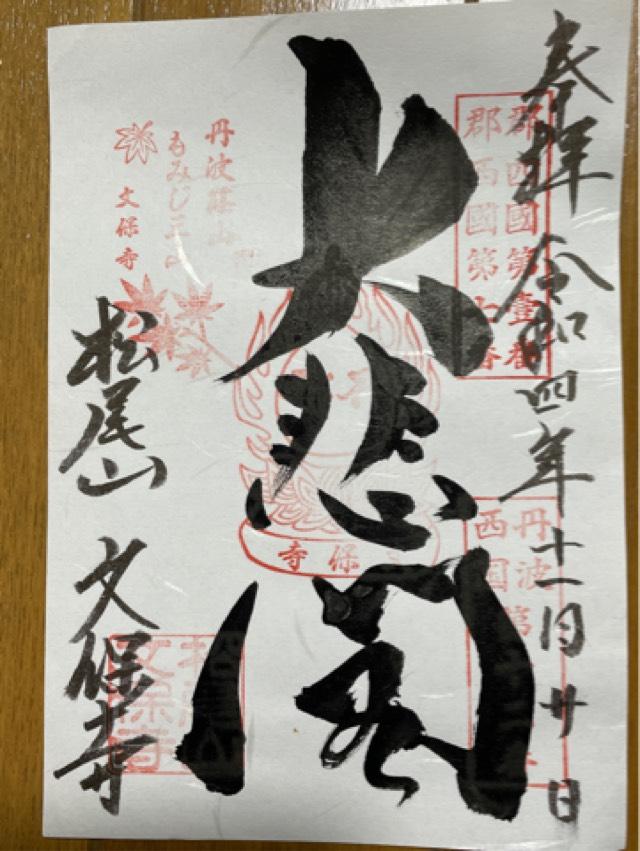 奉拝 令和四年十一月廿日
郡西國第壹番
郡西國第七番
丹波
西国第
大悲閣
保
寺
丹波篠山
もみじ三山
文保寺
松尾山 文保寺
松尾山
文保寺